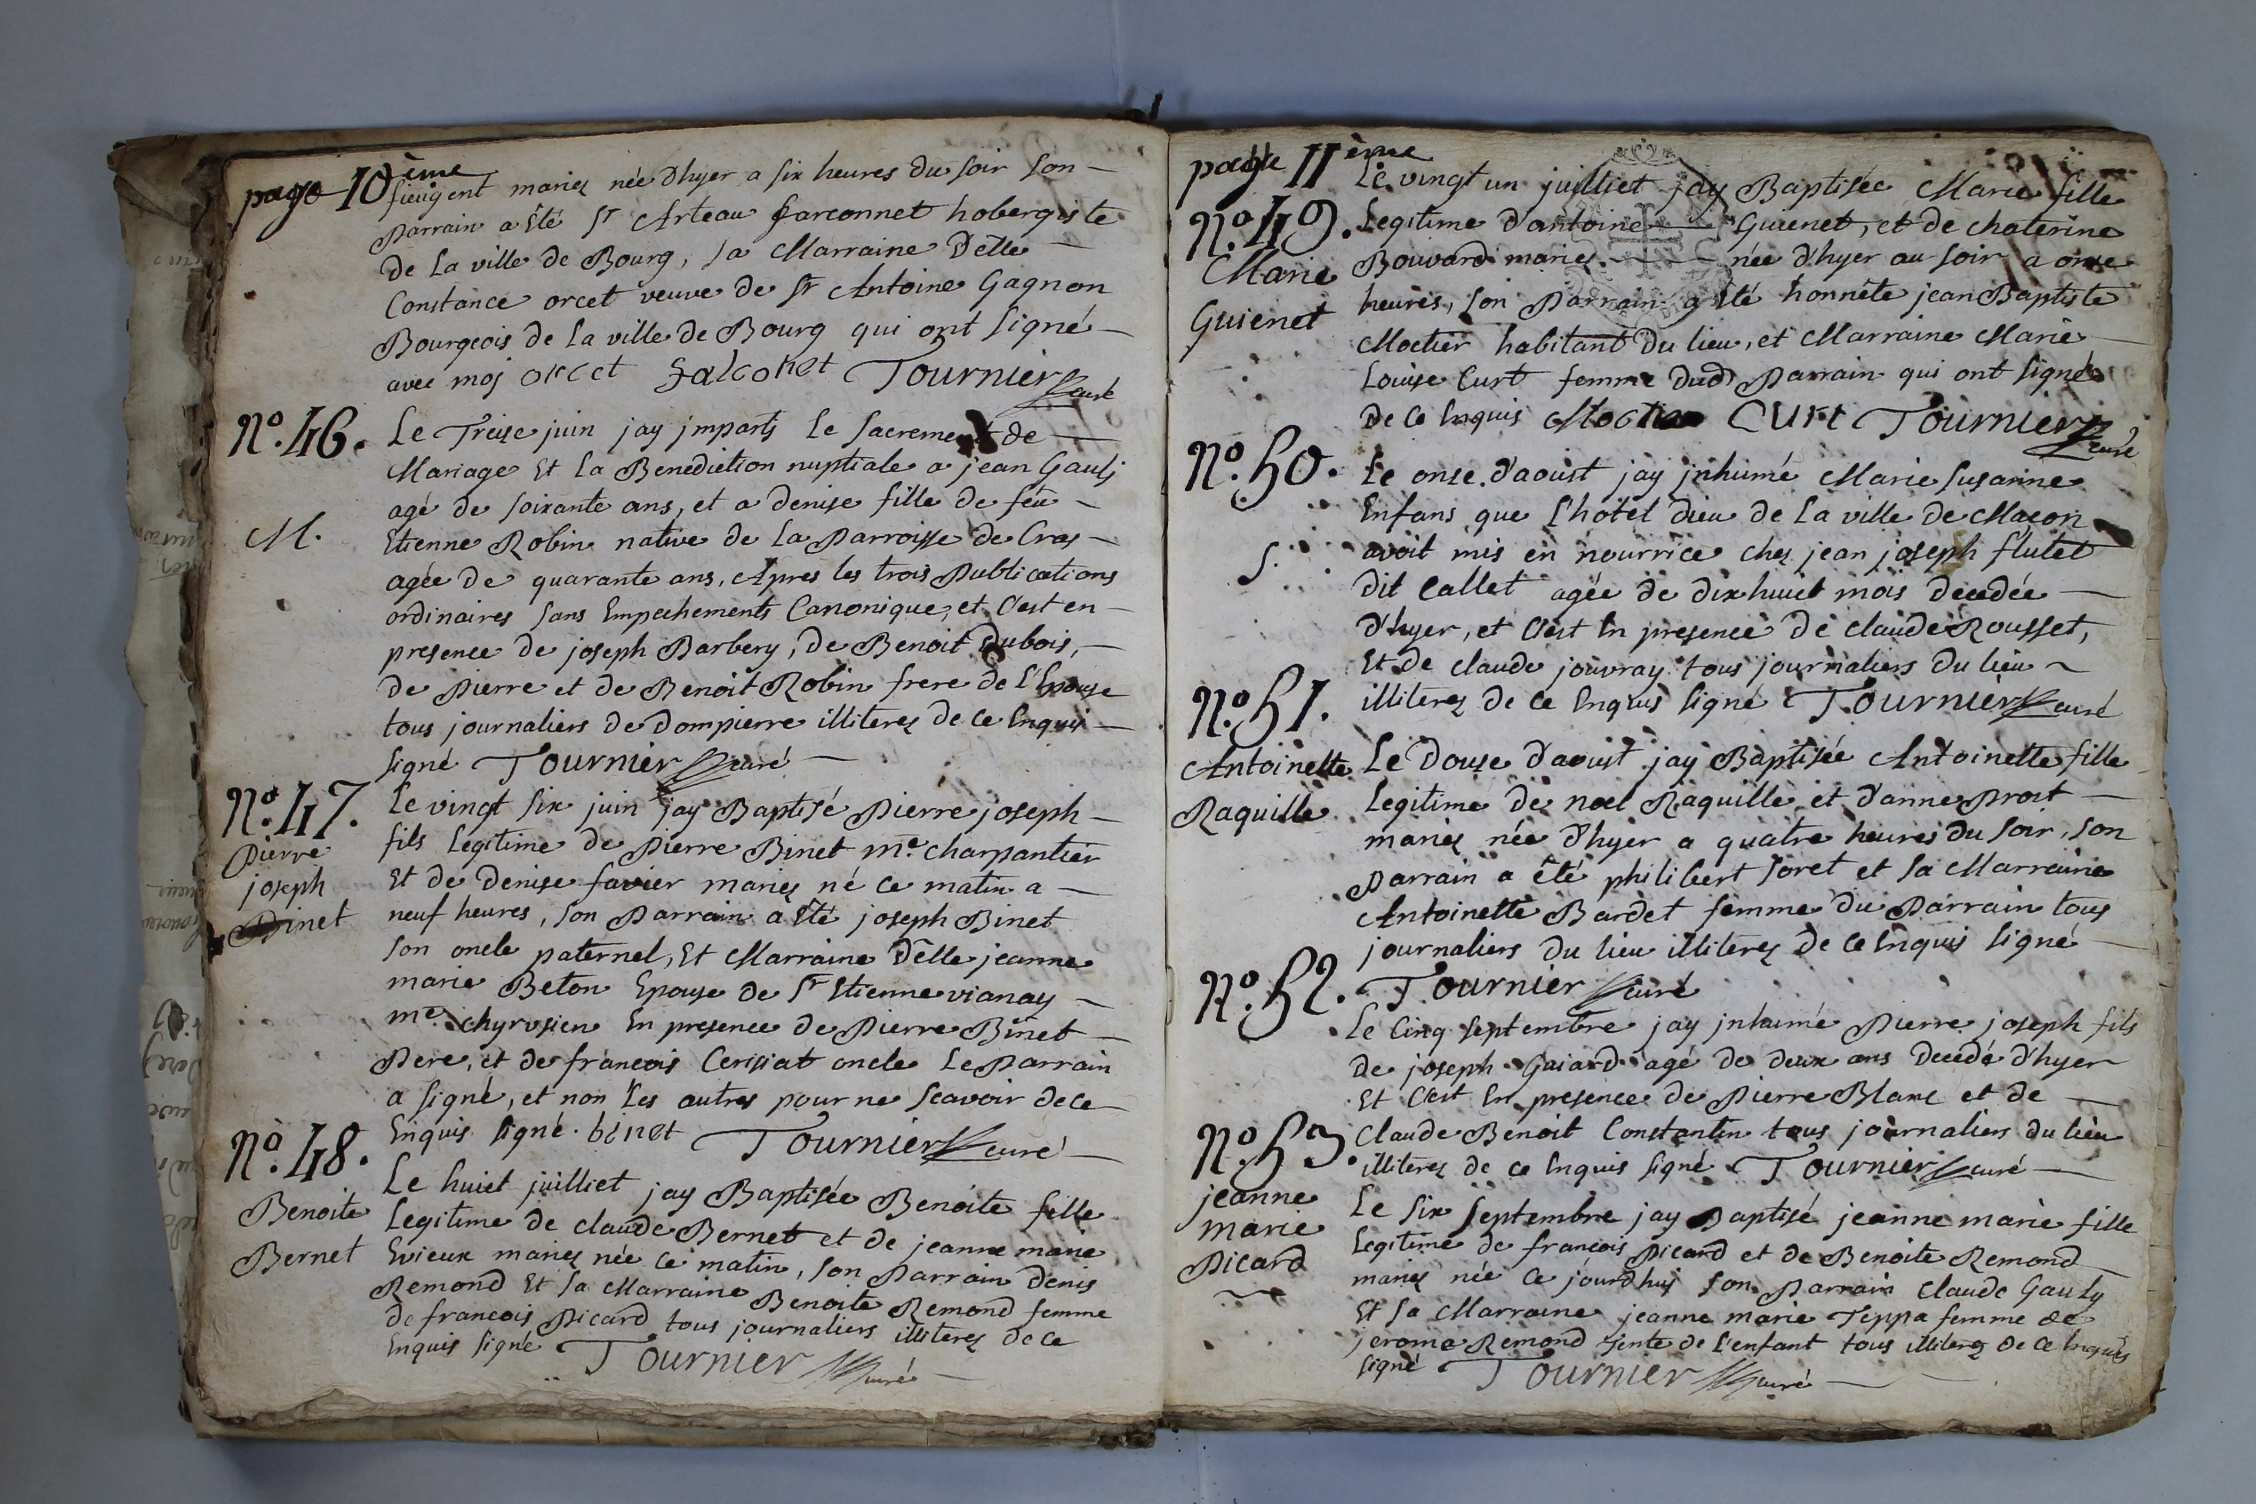 page 10ème
fieugent mariez née d'hyer a six heures du soir son
Parrain a Eté Sr Arteau farconnet hobergiste
De La ville de Bourg, sa Marraine Delle
Constance orcet veuve de Sr Antoine Gagnon
Bourgeois de la ville de Bourg qui ont signé
avec moj orcet falconet Tournier curé
No. 46. M.
Le Treise juin jay jmparti Le sacrement de
Mariage Et La Benediction nuptiale a jean Gaulj
agé de soixante ans, et a denise fille de feu
Etienne Robin native de La Parroisse de Cras
agée de quarante ans, Apres les trois Publications
ordinaires sans Empechements Canonique, et C'est en
presence de joseph Barbery, de Benoit Dubois,
de Pierre et de Benoit Robin frere de L'Epouse
tous journaliers de Dompierre illiterez de ce Enquis
signé Tournier curé
No. 47.
Pierre
joseph
Binet
Le vingt six juin jay Baptisé Pierre joseph
fils Legitime de Pierre Binet me. charpantier
Et de Denise favier mariez né ce matin a
neuf heures, son Parrain a Eté joseph Binet
son oncle paternel, Et Marraine Delle jeanne
marie Beton Epouse de Sr Etienne vianay
me. chyrusien En presence de Pierre Binet
Pere, et de francois Cerisiat oncle Le Parrain
a signé, et non Les autres pour ne scavoir de ce
Enquis signé. bénet Tournier curé
No. 48.
Benoite
Bernet
Le huict juilliet jay Baptisée Benoite fille
Legitime de claude Bernet et de jeanne marie
Evieux mariez née ce matin, son Parrain Denis
Remond Et sa Marraine Benoite Remond femme
de francois Picard tous journaliers illiterez de ce
Enquis signé Tournier curé
page 11ème
No. 49.
Marie
Guienet
Le vingt un juilliet jay Baptisée Marie fille
Legitime d'antoine Guienet, et de chaterine
Bouvard mariez née d'hyer au soir a onse
heures, son Parrain a Eté honnete jean Baptiste
Moctier habitant Du lieu, et Marraine Marie
Louise Curt femme dud Parrain qui ont signé
De ce Enquis Moctier Curt Tournier curé
No. 50. S.
Le onse d'aoust jay jnhumé Marie susanne
Enfans que L'hotel dieu de La ville de Macon
avoit mis en nourrice chez jean joseph flutet
Dit Callet agée de dix huict mois decedée
d'hyer, et C'est En presence de claude Rousset,
Et de claude jouvray tous journaliers du lieu
illiterez de ce Enquis signé Tournier curé
No. 51.
Antoinette
Raquille
Le Douse d'aoust jay Baptisée Antoinette fille
Legitime de noel Raquille et d'anne Prost
mariez née d'hyer a quatre heures du soir, son
Parrain a été philibert soret et sa Marraine
Antoinette Bardet femme du Parrain tous
journaliers du lieu illiterez de ce Enquis signé
Tournier curé
No. 52.
Le Cinq septembre jay jnhumé Pierre joseph fils
de joseph Gaiard agé de deux ans decedé d'hyer
Et C'est En presence de Pierre Blanc et de
Claude Benoit Constantin tous journaliers du lieu
illiterez de ce Enquis signé Tournier curé
No. 53.
jeanne
marie
Picard
Le six septembre jay Baptisé jeanne marie fille
Legitime de francois Picard et de Benoite Remond
mariez née ce jourdhuj son Parrain Claude Gauly
Et sa Marraine jeanne marie Teppa femme de
jerome Remond tente de L'enfant tous illiterez de ce Enquis
signé Tournier curé